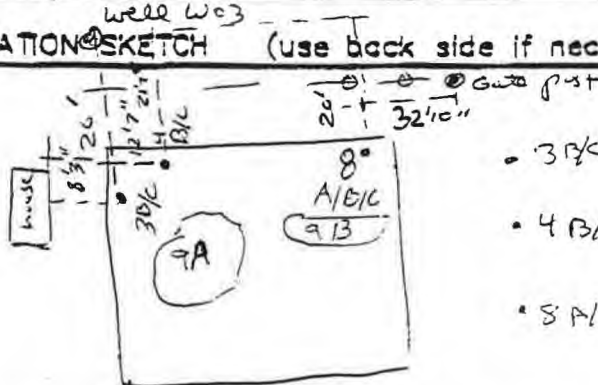 well W03
ATION SKETCH (use back side if nec
Gate post
20'
32'10"
26'
12'7"
4 B/C
8'3"
house
3B/C
8
A/B/C
9B
9A
• 3 B/C
• 4 B/
• 8 A/